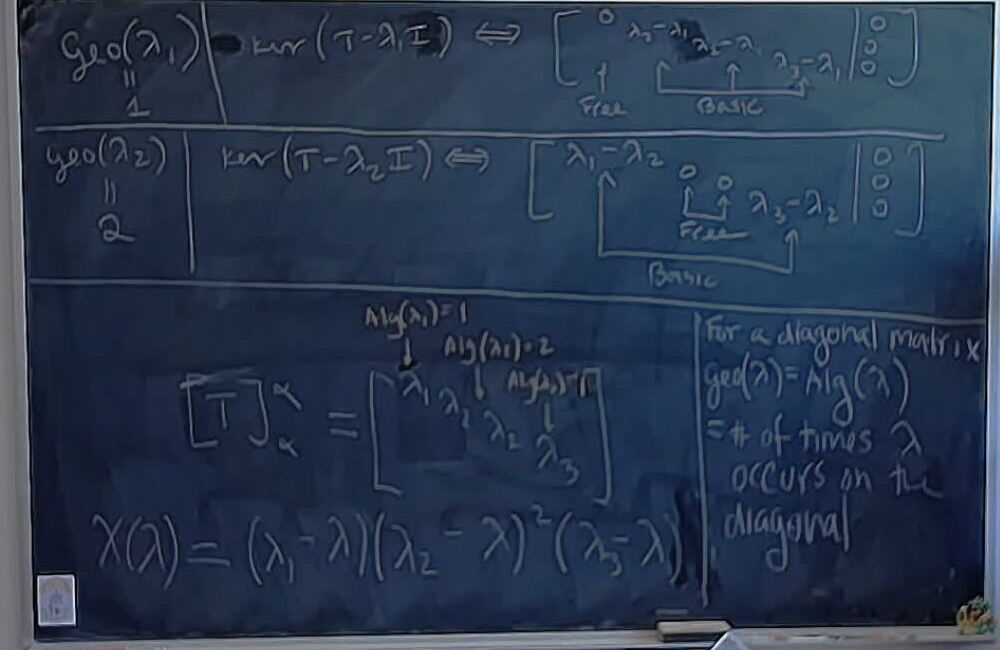 Geo(λ₁) ker(T-λ₁I) ⇔ [ 0 λ₂-λ₁ λ₂-λ₁ λ₃-λ₁ | 0 0 0 ]
=
1
Free Basic
geo(λ₂) ker(T-λ₂I) ⇔ [ λ₁-λ₂ 0 0 λ₃-λ₂ | 0 0 0 ]
=
2
Free
Basic
Alg(λ₁)=1
Alg(λ₁)=2
[T]α α = [ λ₁ λ₂ λ₂ λ₃ ]
χ(λ) = (λ₁-λ)(λ₂-λ)²(λ₃-λ)
For a diagonal matrix
geo(λ)=Alg(λ)
=# of times λ
occurs on the
diagonal